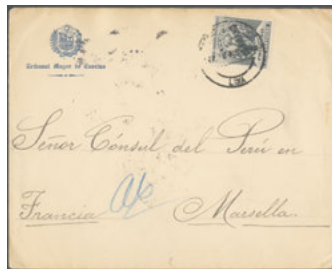 Tribunal Mayor de Cuentas
Señor Cónsul del Perú en
Francia
Marsella.